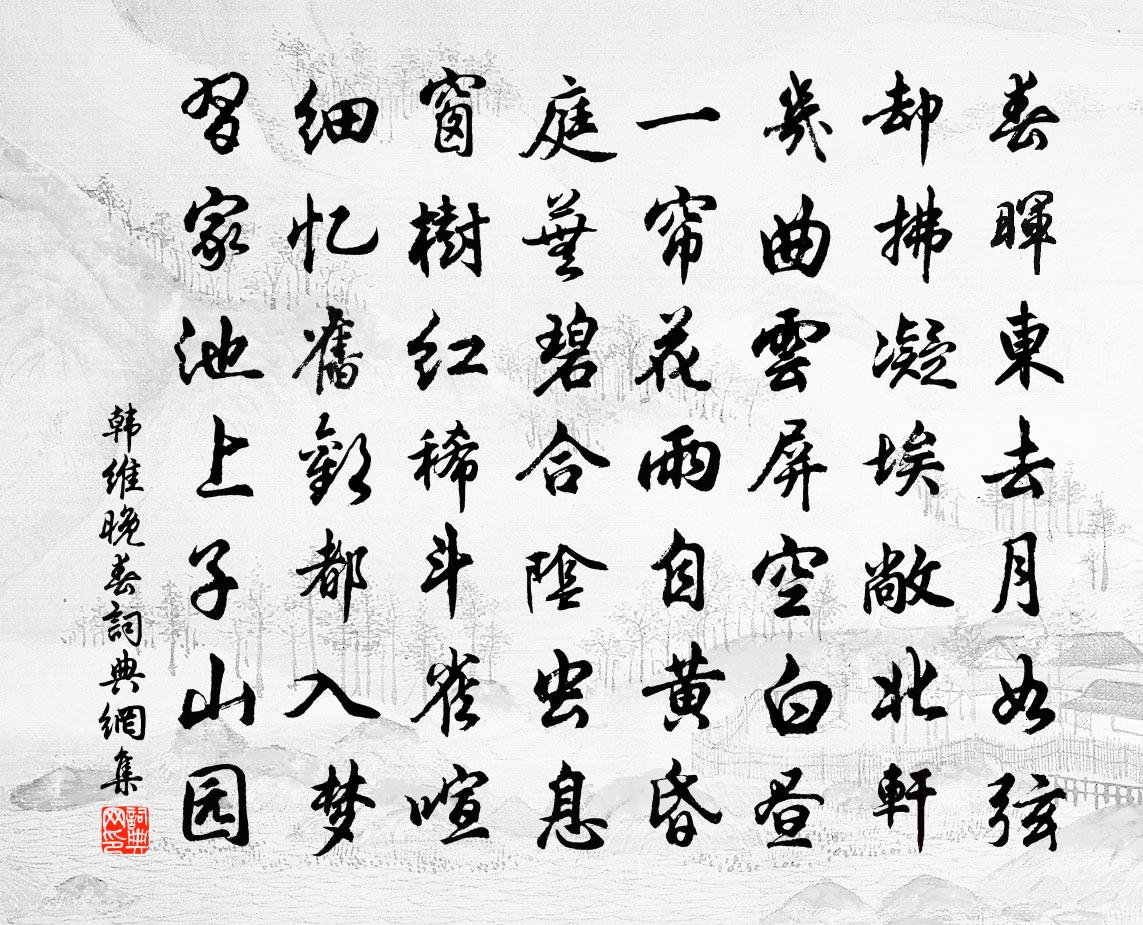 春暉東去月如弦
却拂凝埃敞北軒
幾曲雲屏空白昼
一帘花雨自黄昏
庭蕪碧合陰虫息
窗樹红稀斗雀喧
细忆舊歡都入梦
習家池上子山园
韩維晚春詞典網集
詞典网印